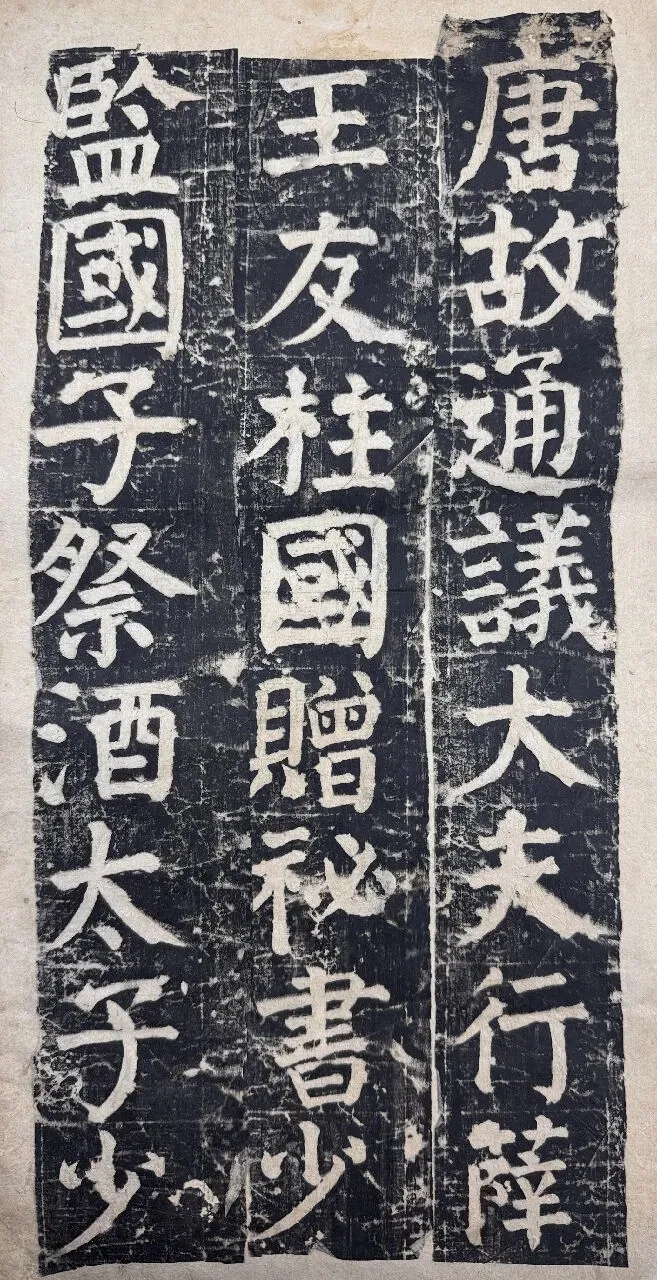 唐故通議大夫行薛
王友柱國贈祕書少
監國子祭酒太子少